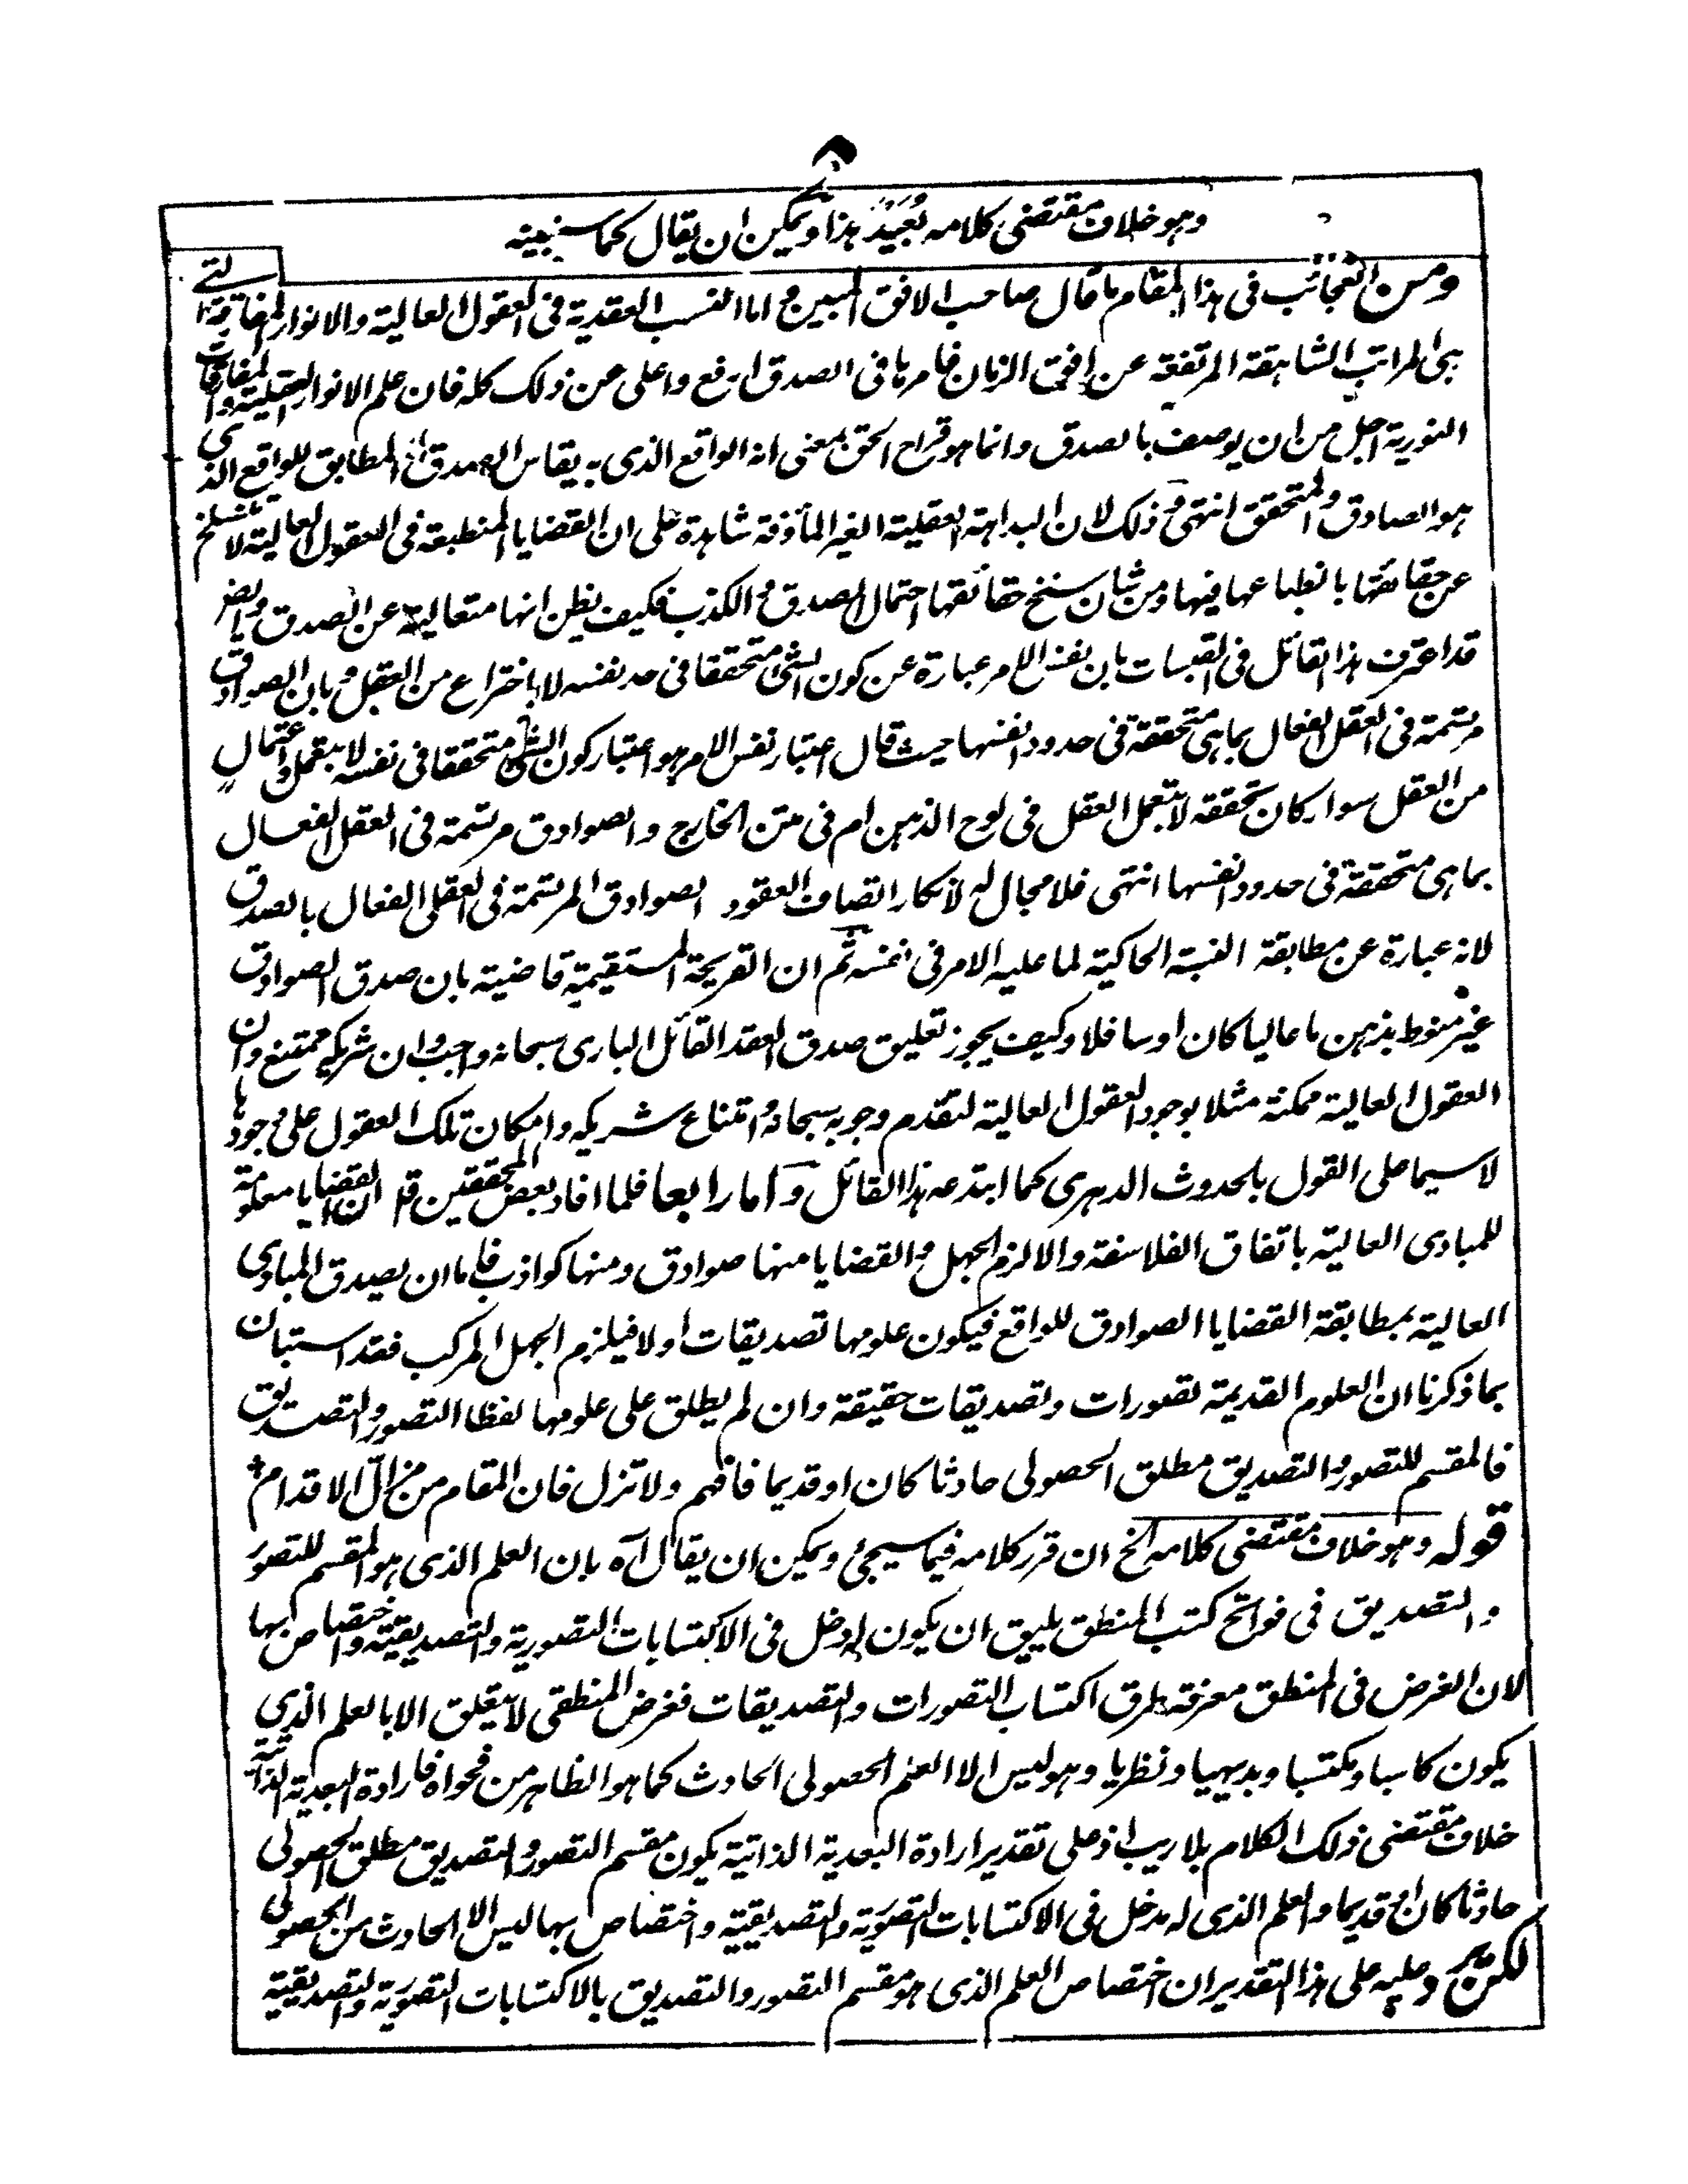 وهو خلاف مقتضى كلامه بُعَيْدَ هذا ويمكن ان يقال كما سنبينه
ومن العجائب في هذا المقام ما قال صاحب الافق المبين واما النسب العقدية في العقول العالية والانوار المفارقة التي
هي المراتب الشاهقة المرتفعة عن افق الزمان فامرها في الصدق ارفع واعلى من ذلك كله فان علم الانوار العقلية والمفارقات
النورية اجل من ان يوصف بالصدق وانما هو قراح الحق بمعنى انه الواقع الذي به يقاس الصدق اذ المطابق للواقع الذي
هو الصادق والمتحقق انتهى وذلك لان البداهة العقلية الغير المأوفة شاهدة على ان القضايا المنطبعة في العقول العالية لا تنسلخ
عن حقائقها بانطباعها فيها ومن شان سنخ حقائقها احتمال الصدق والكذب فكيف يظن انها متعالية عن الصدق وايضا
قد اعترف هذا القائل في القبسات بان نفس الامر عبارة عن كون الشئ متحققا في حد نفسه لا باختراع من العقل وبان الصوادق
مرتسمة في العقل الفعال بما هي متحققة في حدود انفسها حيث قال اعتبار نفس الامر هو اعتبار كون الشئ متحققا في نفسه لا بتعمل واعتمال
من العقل سواء كان تحققه لا بتعمل العقل في لوح الذهن ام في متن الخارج والصوادق مرتسمة في العقل الفعال
بما هي متحققة في حدود انفسها انتهى فلا مجال له لانكار اتصاف العقود الصوادق المرتسمة في العقل الفعال بالصدق
لانه عبارة عن مطابقة النسبة الحاكية لما عليه الامر في نفسه ثم ان القريحة المستقيمة قاضية بان صدق الصوادق
غير منوط بذهن ما عاليا كان او سافلا وكيف يجوز تعليق صدق العقد القائل الباري سبحانه واجب وان شريكه ممتنع وان
العقول العالية ممكنة مثلا بوجود العقول العالية لتقدم وجوبه سبحانه وامتناع شريكه وامكان تلك العقول على وجودها
لا سيما على القول بالحدوث الدهري كما ابتدعه هذا القائل واما رابعا فلما افاد بعض المحققين قد ان القضايا معلومة
للمبادي العالية باتفاق الفلاسفة والا لزم الجهل والقضايا منها صوادق ومنها كواذب فاما ان يصدق المبادي
العالية بمطابقة القضايا الصوادق للواقع فيكون علومها تصديقات اولا فيلزم الجهل المركب فقد استبان
بما ذكرنا ان العلوم القديمة تصورات وتصديقات حقيقة وان لم يطلق على علومها لفظا التصور والتصديق
فالمقسم للتصور والتصديق مطلق الحصولي حادثا كان او قديما فافهم ولا تزل فان المقام من مزالّ الاقدام
قوله وهو خلاف مقتضى كلامه الخ ان قرر كلامه فيما سيجئ ويمكن ان يقال آه بان العلم الذي هو المقسم للتصور
والتصديق في فواتح كتب المنطق يليق ان يكون له دخل في الاكتسابات التصورية والتصديقية واختصاص بها
لان الغرض في المنطق معرفة طرق اكتساب التصورات والتصديقات فغرض المنطقي لا يتعلق الا بالعلم الذي
يكون كاسبا ومكتسبا وبديهيا ونظريا وهو ليس الا العلم الحصولي الحادث كما هو الظاهر من فحواه فارادة البعدية الذاتية
خلاف مقتضى ذلك الكلام بلا ريب اذ على تقدير ارادة البعدية الذاتية يكون مقسم التصور والتصديق مطلق الحصولي
حادثا كان او قديما والعلم الذي له مدخل في الاكتسابات التصورية والتصديقية واختصاص بها ليس الا الحادث من الحصولي
لكن يرد عليه على هذا التقدير ان اختصاص العلم الذي هو مقسم التصور والتصديق بالاكتسابات التصورية والتصديقية